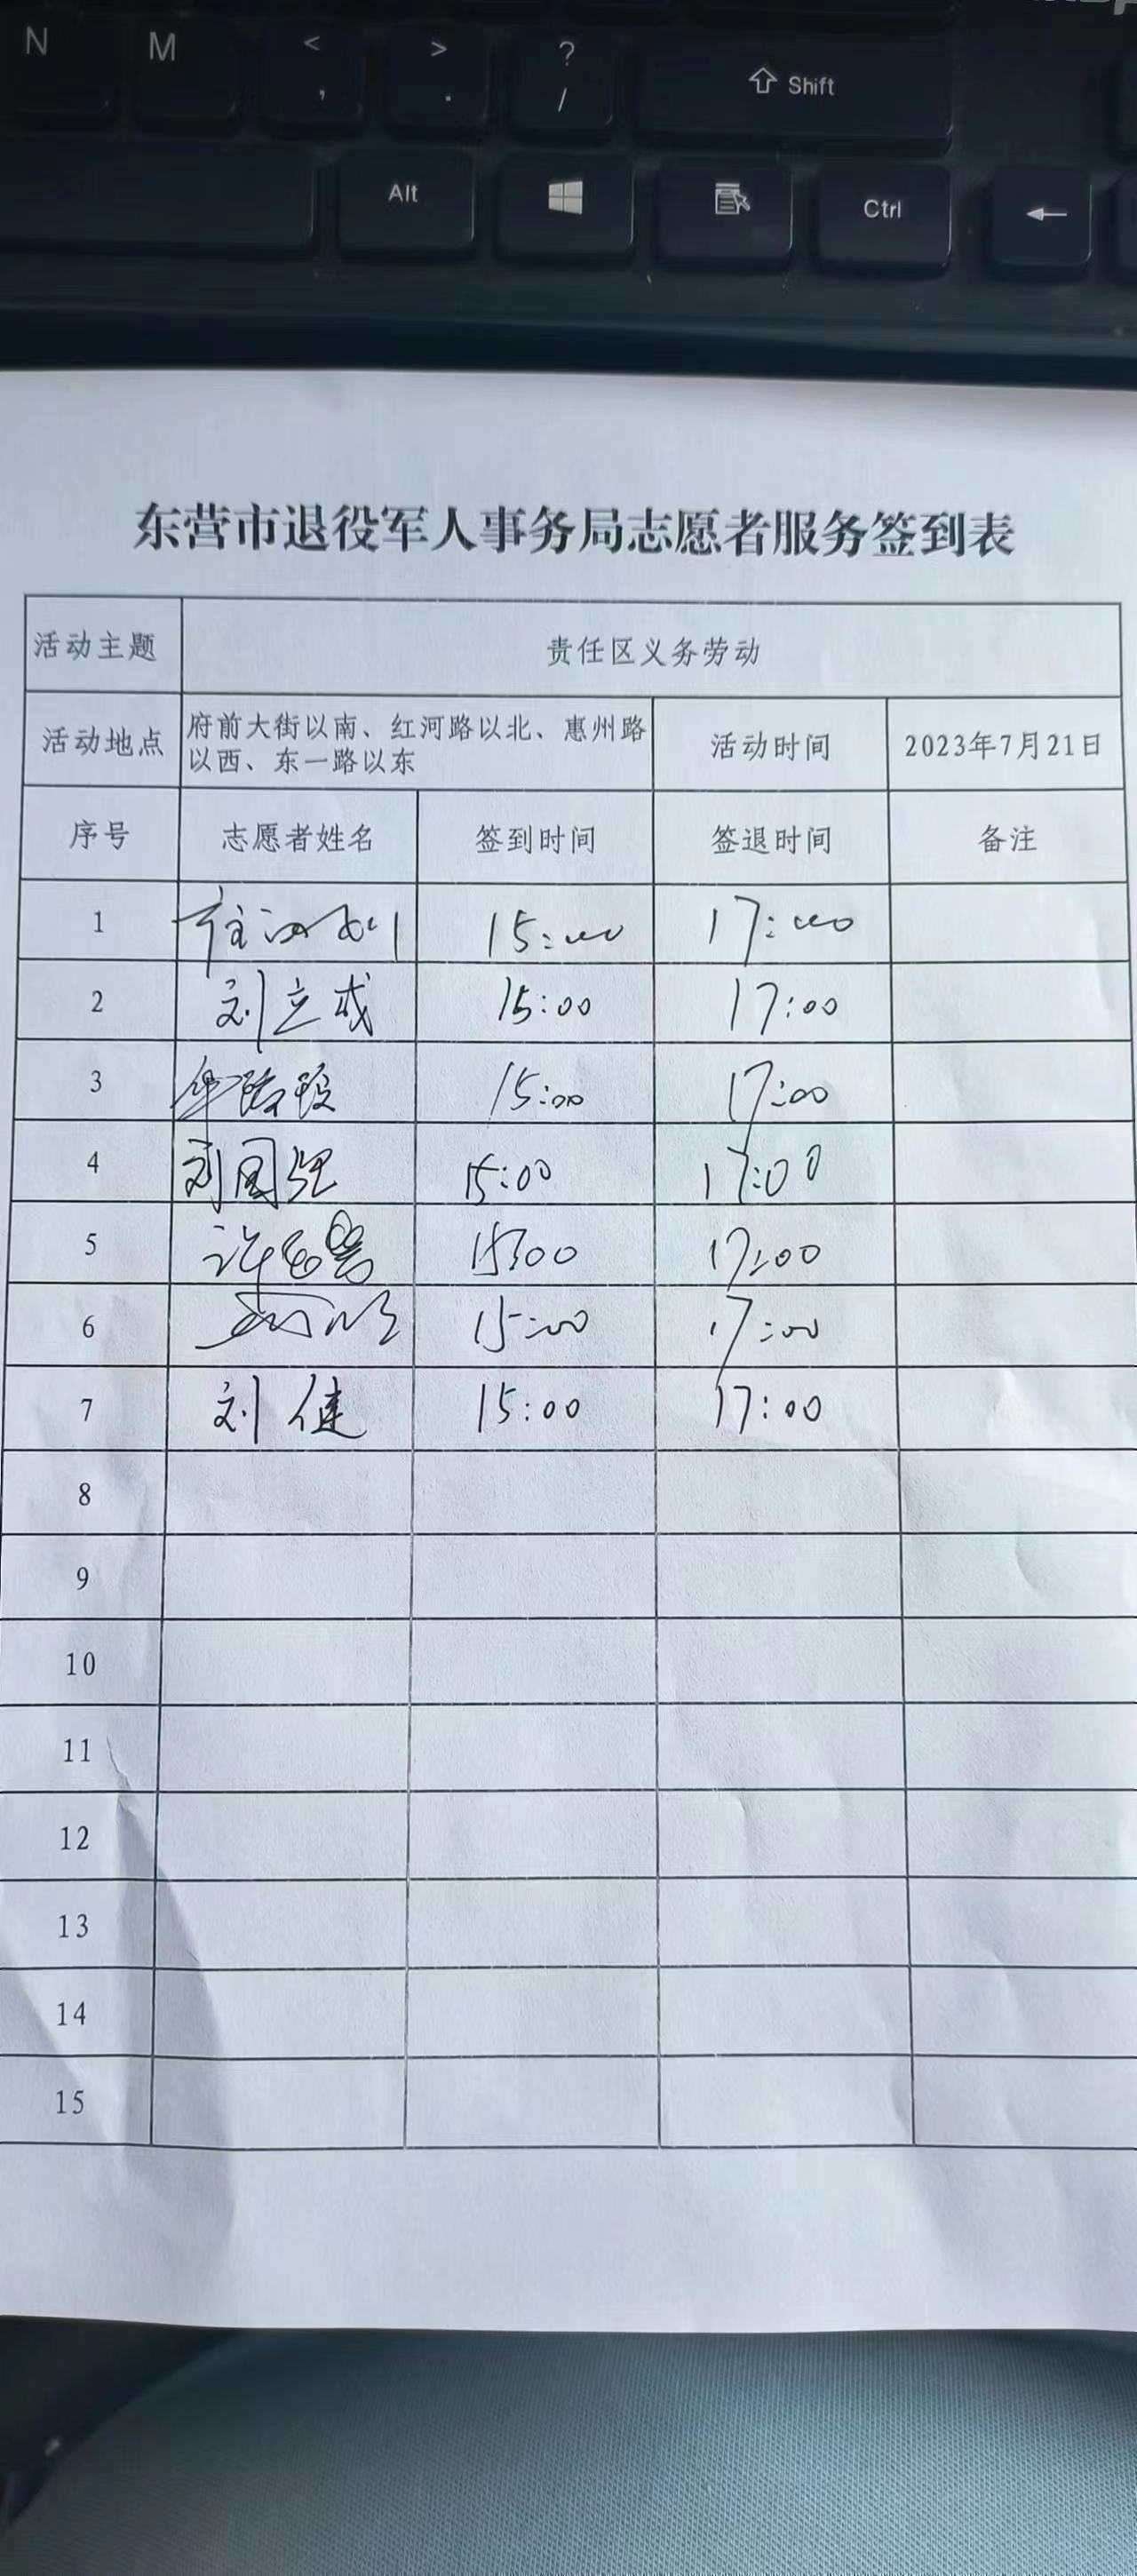 N M < , > . ? / Shift
Alt Ctrl ←
东营市退役军人事务局志愿者服务签到表
活动主题 责任区义务劳动
活动地点 府前大街以南、红河路以北、惠州路以西、东一路以东 活动时间 2023年7月21日
序号 志愿者姓名 签到时间 签退时间 备注
1 15:00 17:00
2 刘立成 15:00 17:00
3 15:00 17:00
4 刘国强 15:00 17:00
5 15:00 17:00
6 15:00 17:00
7 刘健 15:00 17:00
8
9
10
11
12
13
14
15